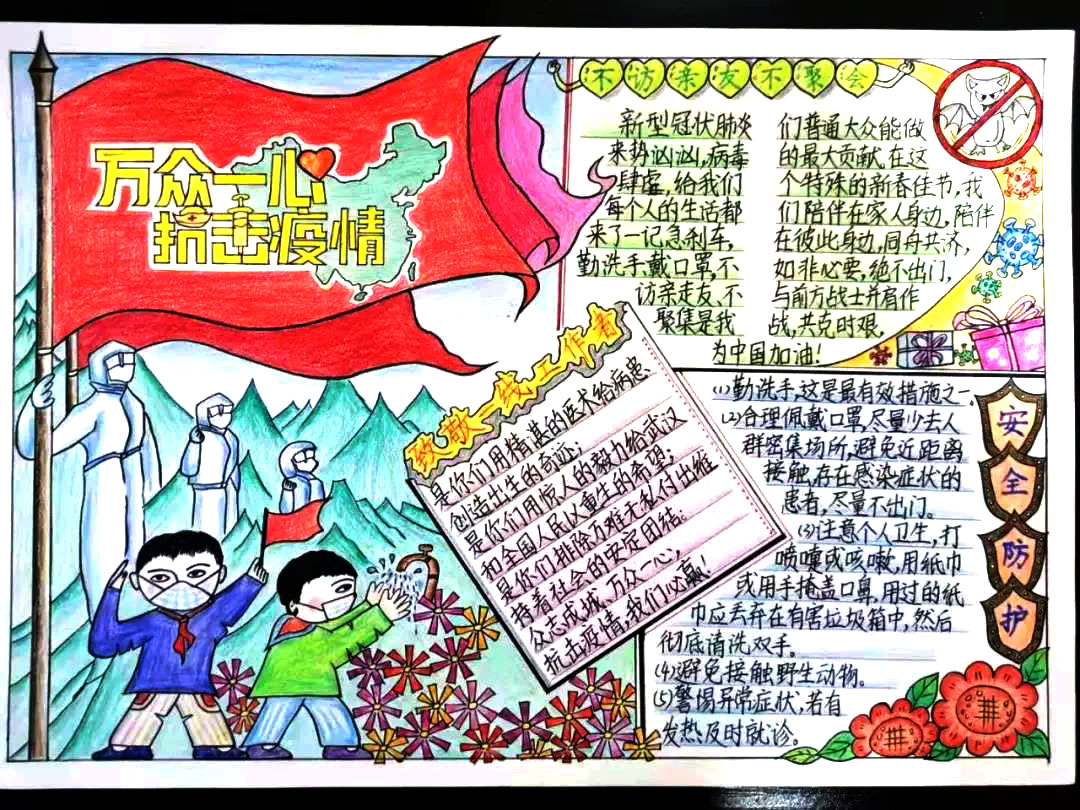 万众一心
抗击疫情
不访亲友不聚会
新型冠状肺炎
来势汹汹,病毒
肆虐,给我们
每个人的生活都
来了一记急刹车,
勤洗手,戴口罩,不
访亲走友、不
聚集是我
们普通大众能做
的最大贡献,在这
个特殊的新春佳节,我
们陪伴在家人身边,陪伴
在彼此身边,同舟共济,
如非必要,绝不出门,
与前方战士并肩作
战,共克时艰,
为中国加油!
致敬一线工作者
是你们用精湛的医术给病患、
创造出生的奇迹;
是你们用惊人的毅力给武汉
和全国人民以重生的希望;
是你们排除万难无私付出维
持着社会的安定团结。
众志成城,万众一心,
抗击疫情,我们必赢!
安全防护
(1)勤洗手,这是最有效措施之一、
(2)合理佩戴口罩,尽量少去人
群密集场所,避免近距离
接触,存在感染症状的
患者,尽量不出门。
(3)注意个人卫生,打
喷嚏或咳嗽,用纸巾
或用手掩盖口鼻,用过的纸
巾应丢弃在有害垃圾箱中,然后
彻底清洗双手。
(4)避免接触野生动物。
(5)警惕异常症状,若有
发热及时就诊。